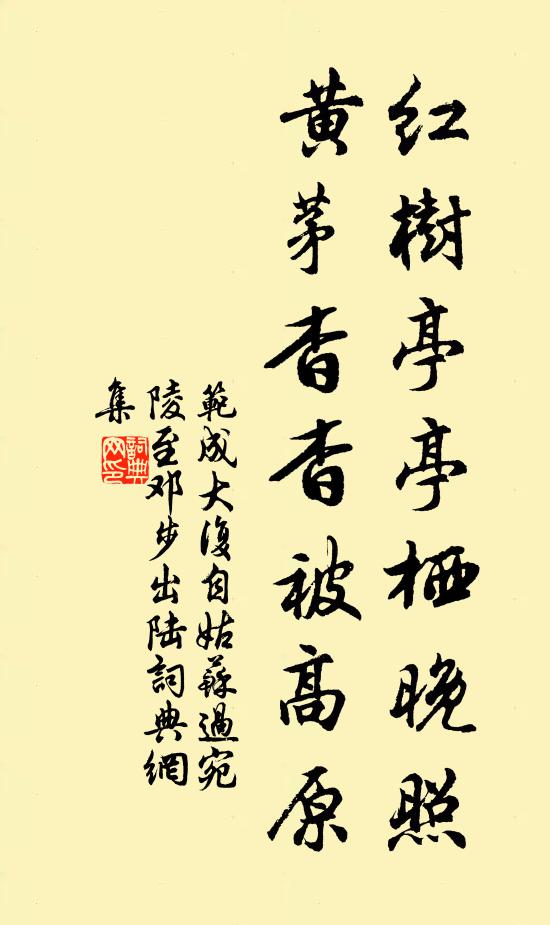 红樹亭亭栖晚照
黄茅杳杳被高原
範成大復自姑蘇過宛
陵至邓步出陆詞典網
集
詞典
网印